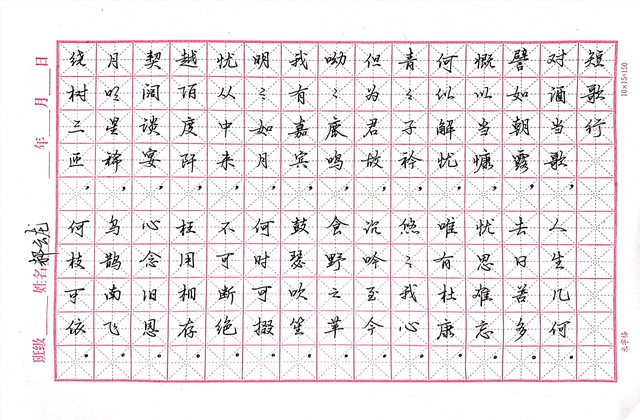 短歌行
对酒当歌，人生几何。
譬如朝露，去日苦多。
慨以当慷，忧思难忘。
何似解忧，唯有杜康。
青々子衿，悠々我心。
但为君故，沉吟至今。
呦々鹿鸣，食野之草。
我有嘉宾，鼓瑟吹笙。
明々如月，何时可掇。
忧从中来，不可断绝。
越陌度阡，枉用相存。
契阔谈宴，心念旧恩。
月明星稀，乌鹊南飞。
绕树三匝，何枝可依。
班级 姓名 云龙 年 月 日
10×15=150
米字格